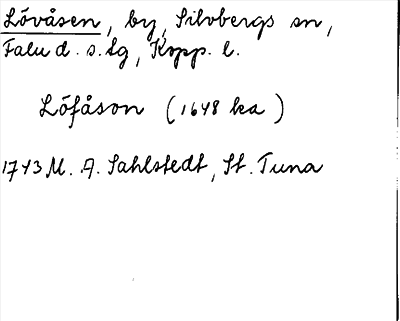 Lövåsen, by, Silvbergs sn,
Falu d. s. lg, Kopp. l.
Löfåson (1648 ka)
1743 M. A. Sahlstedt, St. Tuna